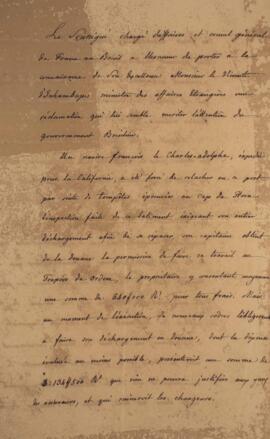 Le Soussigné chargé d'affaires et consul général
de France au Brésil a l'honneur de porter à la
connaissance de Son Excellence Monsieur le Vicomte
d'Inhambupe ministre des affaires étrangères une
réclamation qui lui semble mériter l'attention du
gouvernement Brésilien.
Un navire français le Charles-adolphe, expédié
pour la Californie, a été forcé de relâcher en ce port
par suite de tempêtes éprouvées au cap de Horn
L'inspection faite de ce bâtiment exigeant son entier
déchargement afin de le réparer, son capitaine obtint
de la douane la permission de faire ce travail au
Trapiche da Ordem, le propriétaire y consentant moyennant
une somme de 640$000 Rs pour tous frais. Mais
au moment de l'exécution, de nouveaux ordres l'obligèrent
à faire son déchargement en douane, dont la dépense
évaluée au moins possible, présenterait une somme de
1:364$500 Rs que rien ne pourra justifier aux yeux
des assureurs, et qui ruinerait les chargeurs.